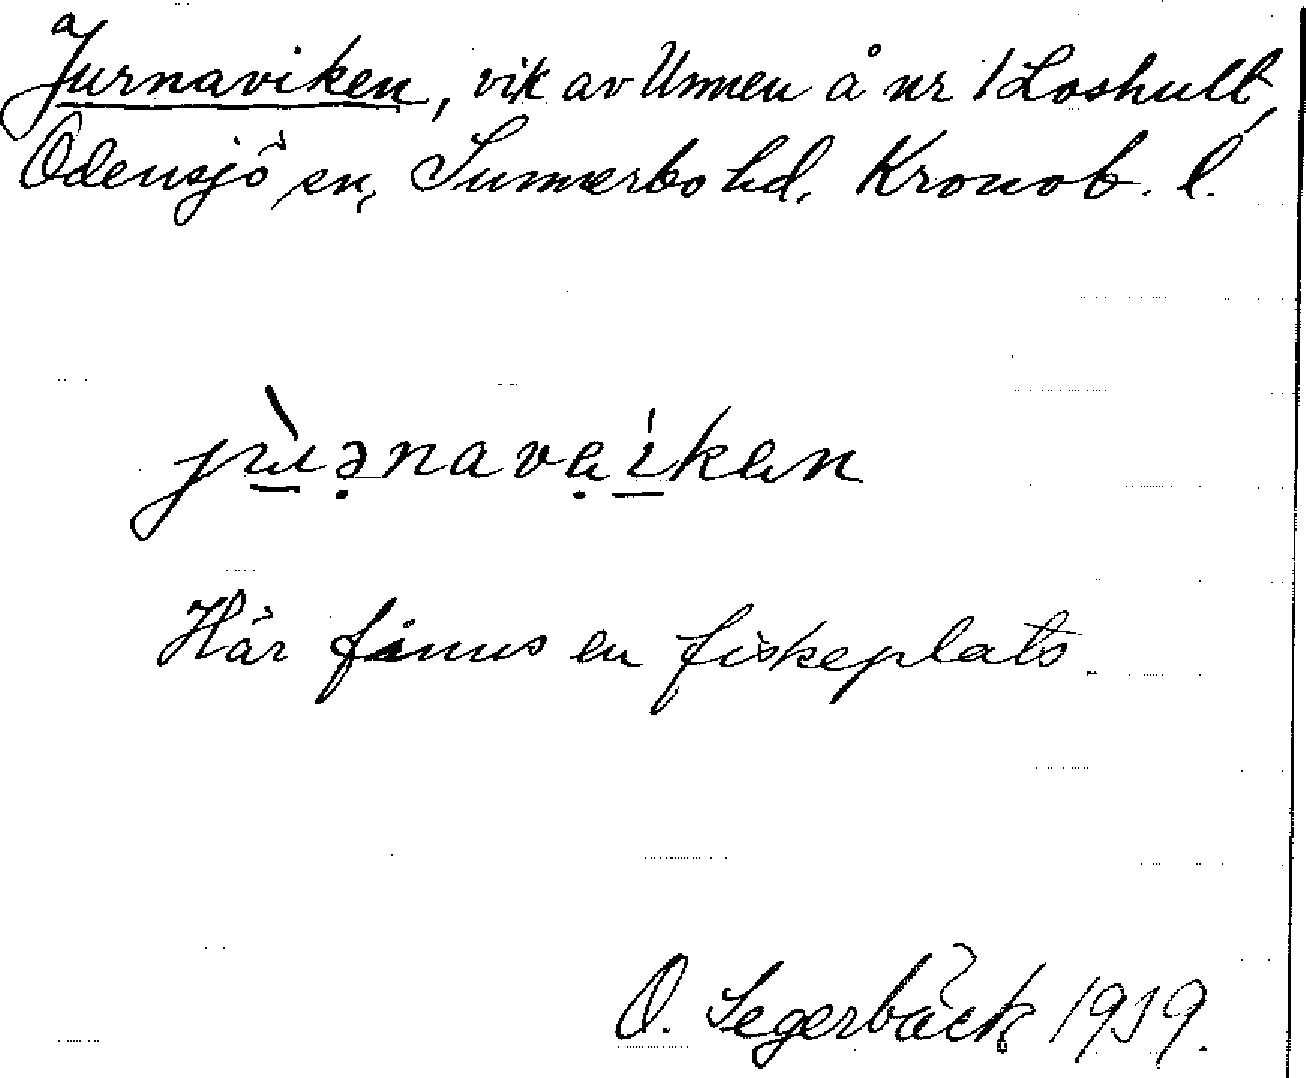 a
Jurnaviken, vik av Unnen å nr 1 Loshult,
Odensjö sn, Sunnerbo hd, Kronob. l.
jùənavaíkan
Här finns en fiskeplats.
O. Segerbäck 1919.